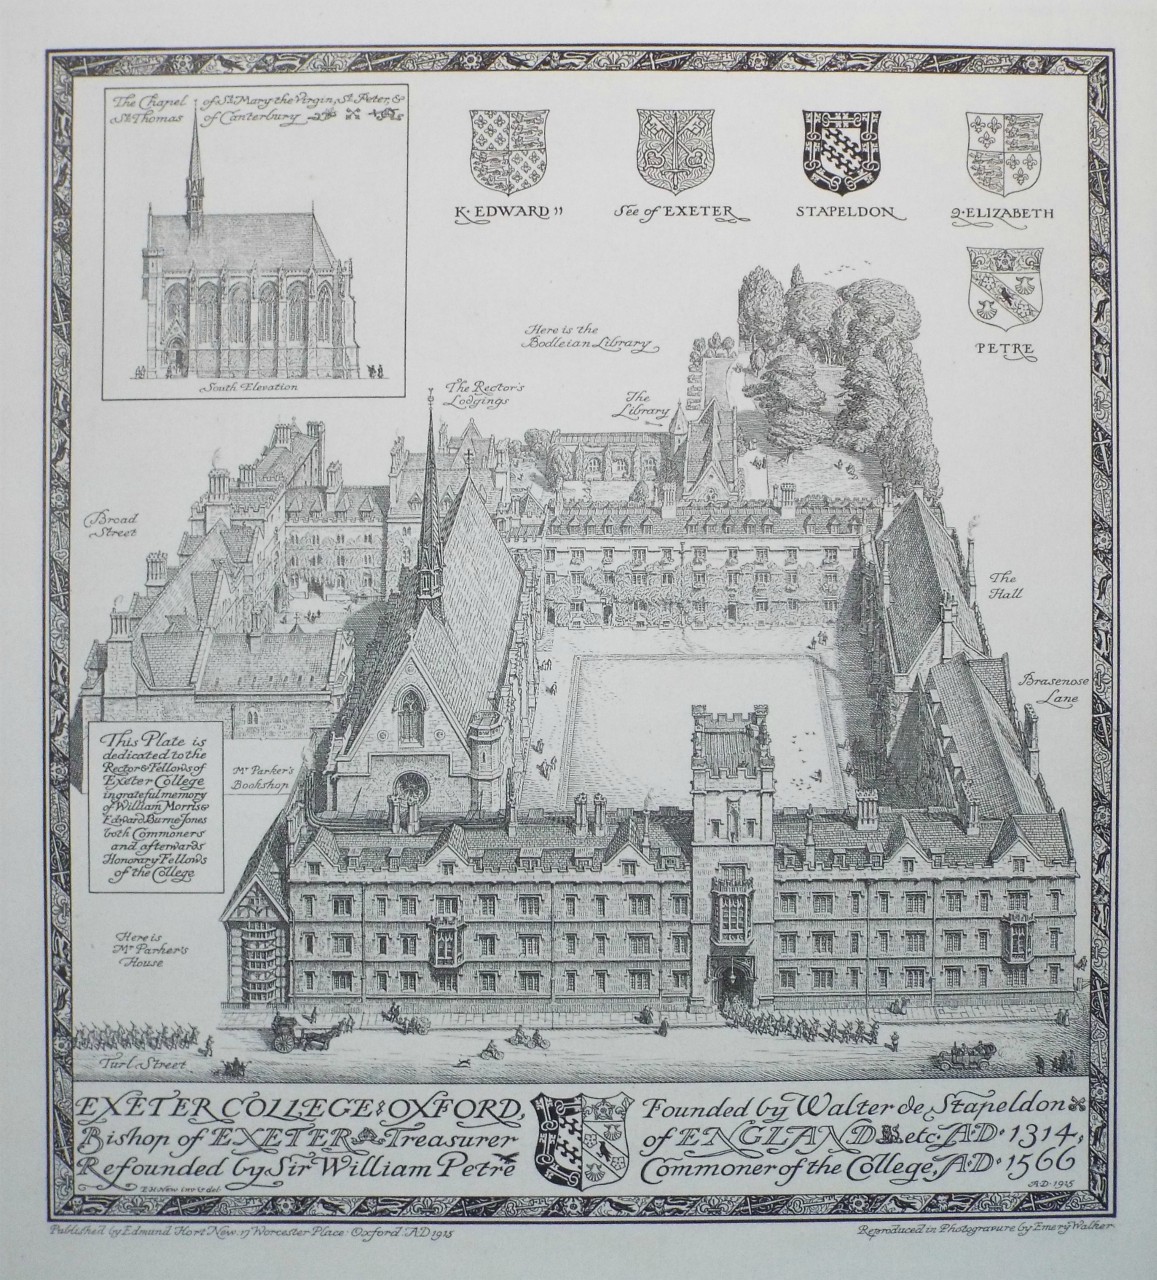 The Chapel of St. Mary the Virgin, St. Peter, &
St. Thomas of Canterbury
South Elevation
K. EDWARD II
See of EXETER
STAPELDON
Q. ELIZABETH
PETRE
Here is the
Bodleian Library
The Rector's
Lodgings
The
Library
Broad
Street
The
Hall
Brasenose
Lane
This Plate is
dedicated to the
Rector & Fellows of
Exeter College
in grateful memory
of William Morris &
Edward Burne-Jones
both Commoners
and afterwards
Honorary Fellows
of the College
Mr Parker's
Bookshop
Here is
Mr Parker's
House
Turl Street
EXETER COLLEGE: OXFORD,
Bishop of EXETER Treasurer
Refounded by Sir William Petre
Founded by Walter de Stapeldon
of ENGLAND etc. A.D. 1314,
Commoner of the College, A.D. 1566
E.H. New inv. & del.
A.D. 1915
Published by Edmund Hort New. 17 Worcester Place: Oxford. AD 1915
Reproduced in Photogravure by Emery Walker